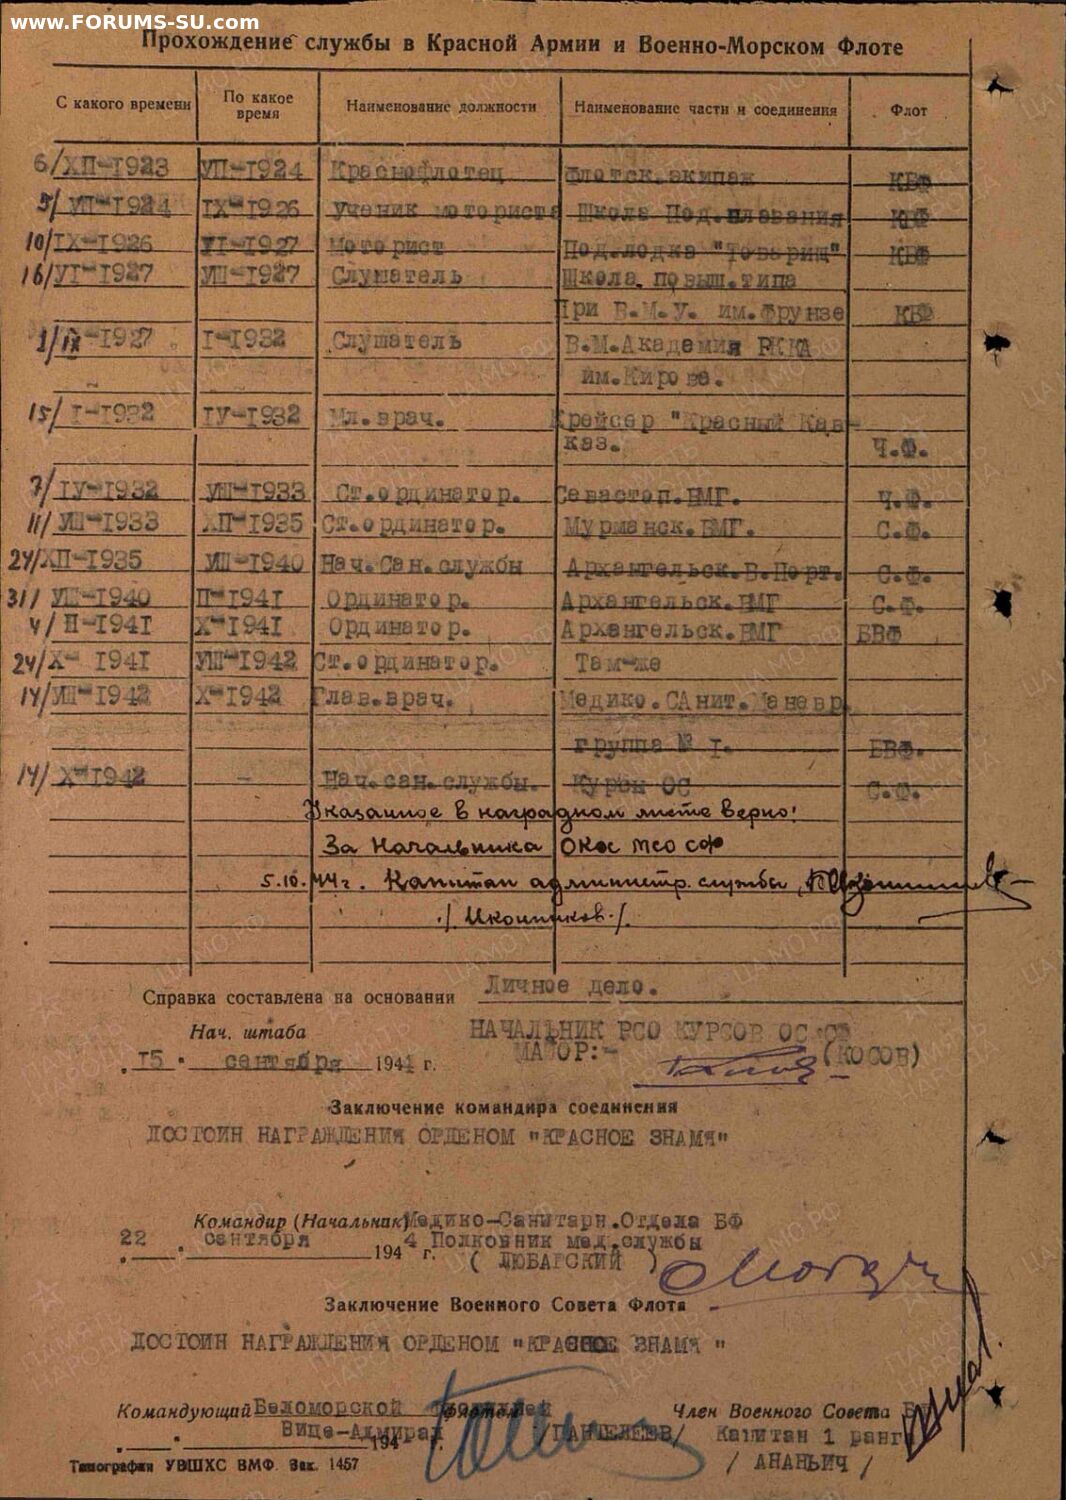 www.FORUMS-SU.com
Прохождение службы в Красной Армии и Военно-Морском Флоте
С какого времени По какое время Наименование должности Наименование части и соединения Флот
6/ХП-1923 УП-1924 Краснофлотец Флотск.экипаж КБФ
5/ УП-1924 IX-1926 ученик моториста Школа Под.плавания КБФ
10/IX-1926 УI-1927 моторист Под.лодка "Товарищ" КБФ
16/УI-1927 УШ-1927 Слушатель Школа повыш.типа
При В.М.У. им.Фрунзе КБФ
1/IX-1927 I-1932 Слушатель В.М.Академия РККА
им.Кирова.
15/ I-1932 IУ-1932 Мл.врач. Крейсер "Красный Кав-
каз. Ч.Ф.
7/IУ-1932 УШ-1933 Ст.ординатор. Севастоп.ВМГ. Ч.Ф.
11/ УШ-1933 ХП-1935 Ст.ординатор. Мурманск.ВМГ. С.Ф.
24/ХП-1935 УШ-1940 Нач.Сан.службы Архангельск.В.Порт. С.Ф.
31/ УШ-1940 П-1941 Ординатор. Архангельск.ВМГ С.Ф.
4/ П-1941 Х-1941 Ординатор. Архангельск.ВМГ БВФ
24/Х- 1941 УШ-1942 Ст.ординатор. Там-же
14/УШ-1942 Х-1942 Глав.врач. Медико.САнит.Маневр.
группа № I. БВФ.
14/ Х-1942 - Нач.сан.службы. Курсы ОС С.Ф.
Указанное в наградном листе верно!
За Начальника ОКос МСО СФ
5.10.44г. Капитан администр. службы,
/Иконников/.
Справка составлена на основании Личное дело.
Нач. штаба НАЧАЛЬНИК РСО КУРСОВ ОС СФ
"15" сентября 1944 г. МАЙОР:- (КОСОВ)
Заключение командира соединения
ДОСТОИН НАГРАЖДЕНИЯ ОРДЕНОМ "КРАСНОЕ ЗНАМЯ"
Командир (Начальник) Медико-Санитарн.Отдела БФ
22 сентября 194 4 г. Полковник мед.службы
( ЛЮБАРСКИЙ )
Заключение Военного Совета Флота
ДОСТОИН НАГРАЖДЕНИЯ ОРДЕНОМ "КРАСНОЕ ЗНАМЯ "
Командующий Беломорской флотилией Член Военного Совета
Вице-Адмирал /ПАНТЕЛЕЕВ/ Капитан 1 ранга
194 г. / АНАНЬИЧ /
Типография УВШХС ВМФ. Зак. 1457